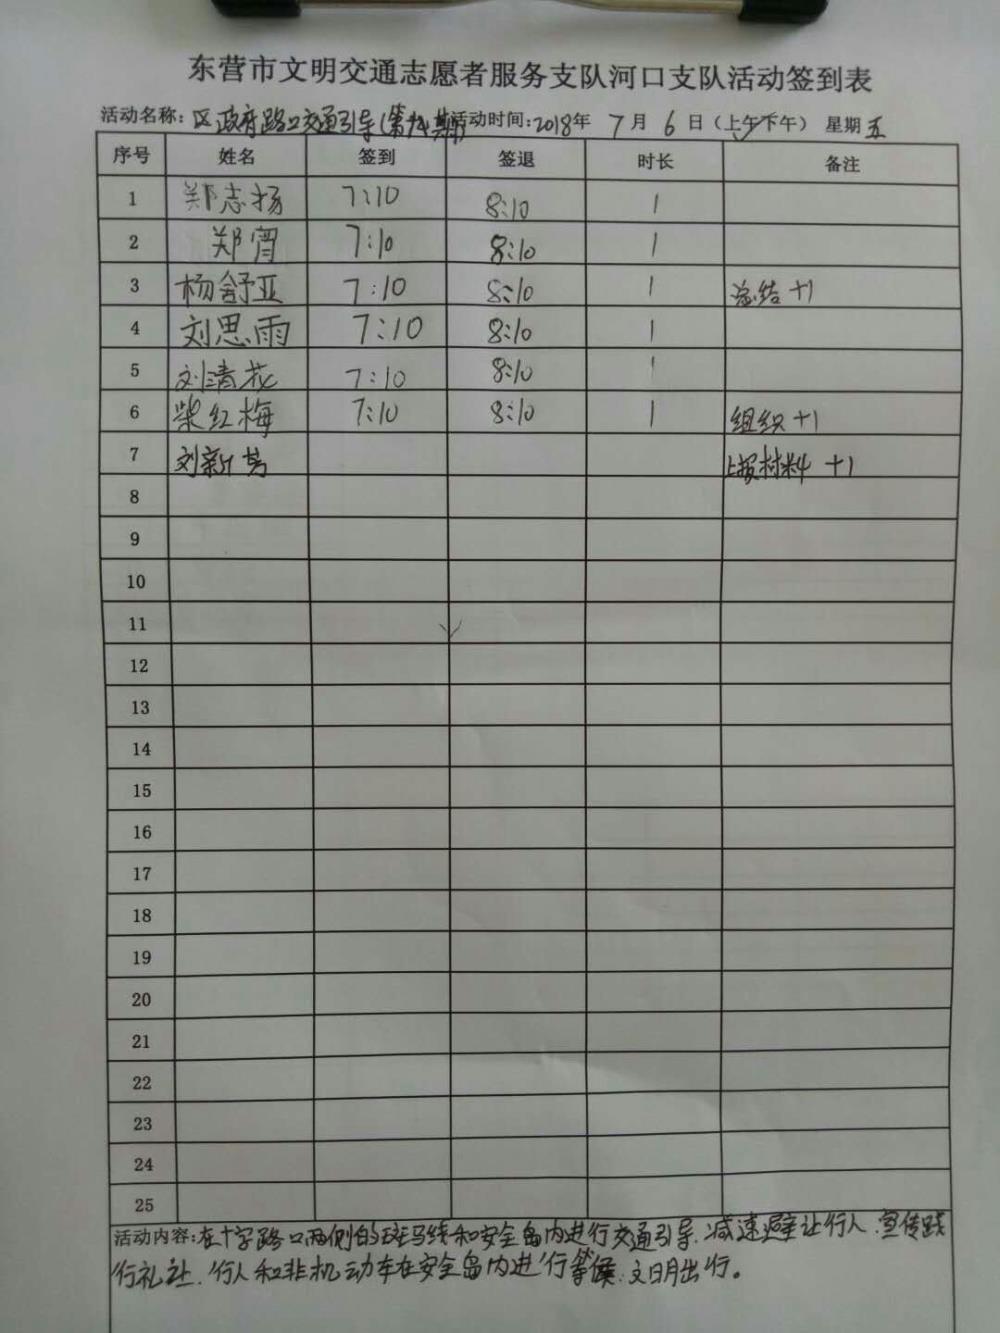 东营市文明交通志愿者服务支队河口支队活动签到表
活动名称：区政府路口交通引导(第九期) 活动时间：2018年 7月 6日（上午下午） 星期五
序号 姓名 签到 签退 时长 备注
1 郑志扬 7:10 8:10 1
2 郑宵 7:10 8:10 1
3 杨舒亚 7:10 8:10 1 总结+1
4 刘思雨 7:10 8:10 1
5 刘清花 7:10 8:10 1
6 柴红梅 7:10 8:10 1 组织+1
7 刘新芳 上报材料 +1
8
9
10
11
12
13
14
15
16
17
18
19
20
21
22
23
24
25
活动内容：在十字路口两侧的斑马线和安全岛内进行交通引导，减速避让行人，宣传践
行礼让，行人和非机动车在安全岛内进行等候，文明出行。